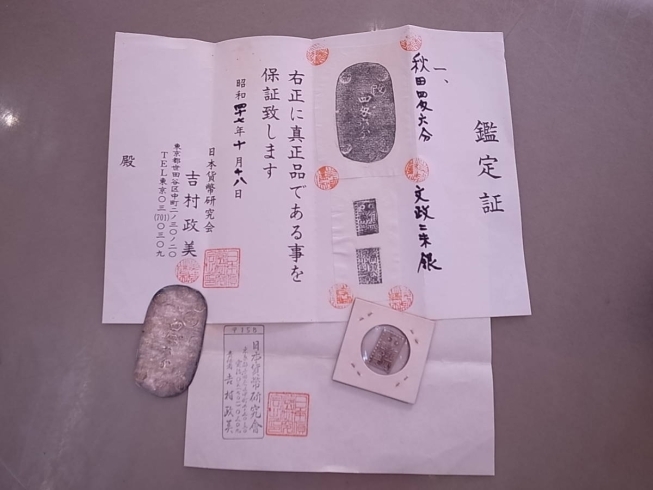 鑑定証
一、
秋田四匁六分
文政二朱銀
改
四匁六分
右正に真正品である事を
保証致します
昭和四十七年十月十八日
日本貨幣研究会
吉村政美
東京都世田谷区中町二ノ三〇ノ二〇
TEL東京〇三(701)〇三〇九
殿
〒158
日本貨幣研究會
吉村政美